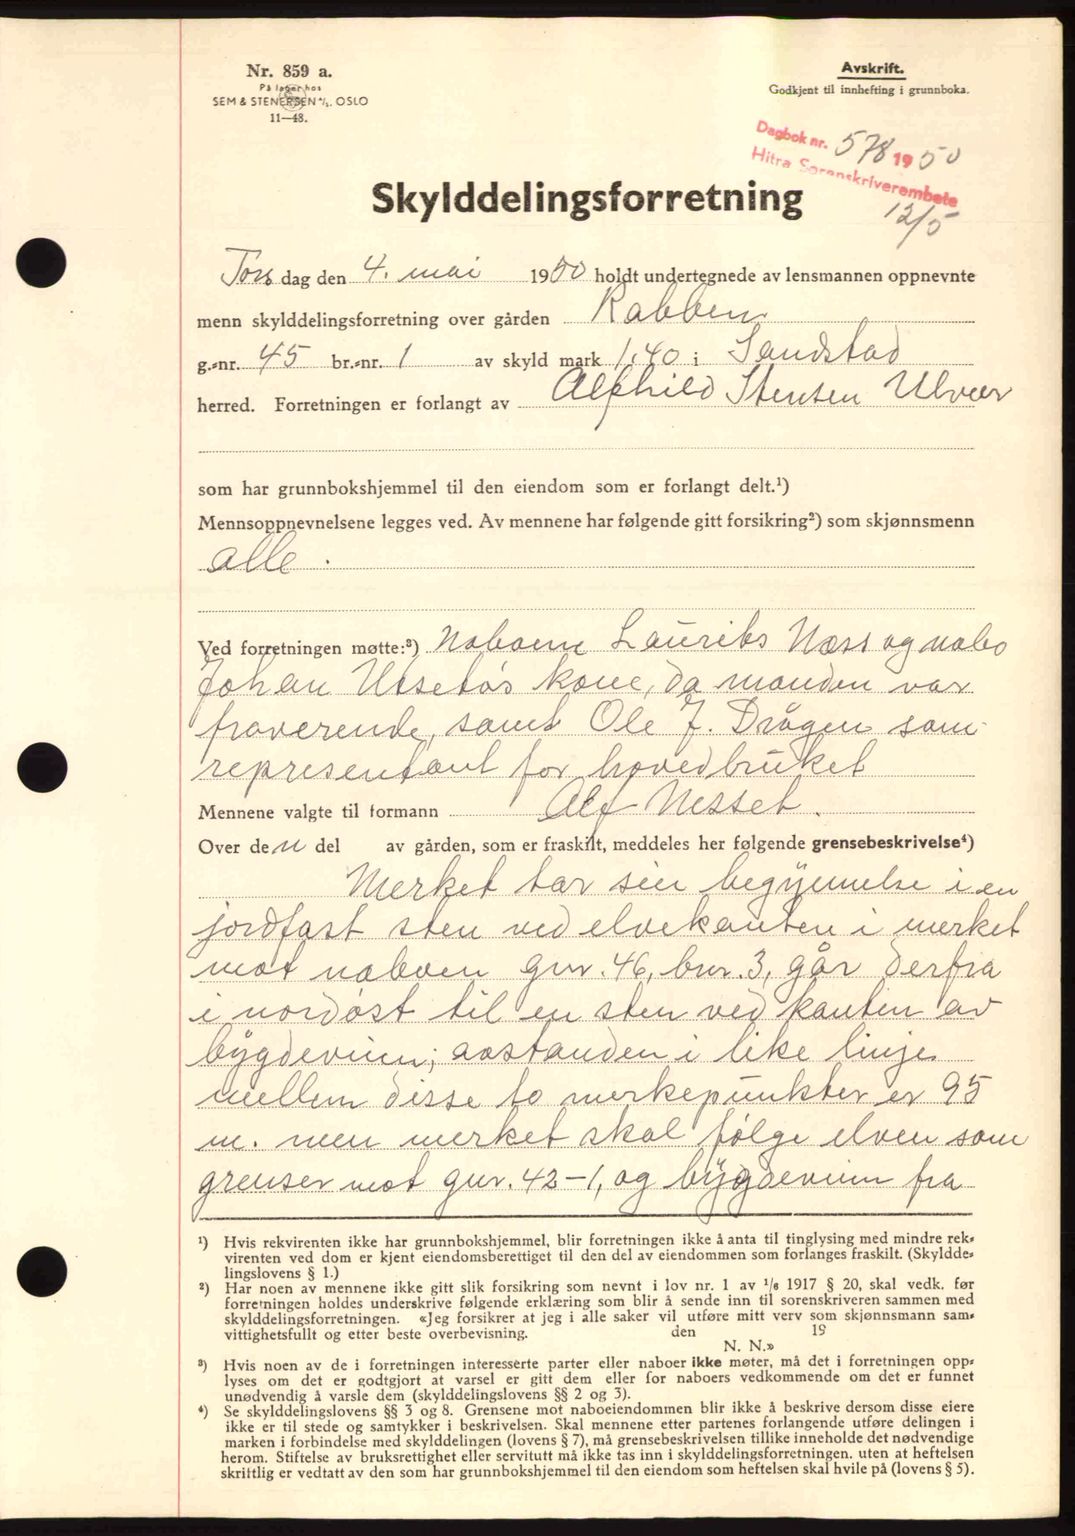 Nr. 859 a.
På lager hos
SEM & STENERSEN A/S, OSLO
11—48.
Avskrift.
Godkjent til innhefting i grunnboka.
Dagbok nr. 578 1950
Hitra Sorenskriverembete
12/5
Skylddelingsforretning
Tors dag den 4. mai 1950 holdt undertegnede av lensmannen oppnevnte
menn skylddelingsforretning over gården Rabben
g.-nr. 45 br.-nr. 1 av skyld mark 1,40 i Sandstad
herred. Forretningen er forlangt av Alfhild Stensen Ulvær
som har grunnbokshjemmel til den eiendom som er forlangt delt.¹)
Mennsoppnevnelsene legges ved. Av mennene har følgende gitt forsikring²) som skjønnsmenn
alle.
Ved forretningen møtte:³) Naboene Laurits Næss og nabo
Johan Utsetøs kone, da manden var
fraverende, samt Ole J. Drågen som
representant for hovedbruket
Mennene valgte til formann Alf Nesset.
Over den del av gården, som er fraskilt, meddeles her følgende grensebeskrivelse⁴)
Merket tar sin begynnelse i en
jordfast sten ved elvekanten i merket
mot naboen gnr. 46, bnr. 3, går derfra
i nordøst til en sten ved kanten av
bygdeveien; avstanden i like linje
mellem disse to merkepunkter er 95
m. men merket skal følge elven som
grenser mot gnr. 42-1, og bygdeveien fra
¹) Hvis rekvirenten ikke har grunnbokshjemmel, blir forretningen ikke å anta til tinglysing med mindre rek-
virenten ved dom er kjent eiendomsberettiget til den del av eiendommen som forlanges fraskilt. (Skyldde-
lingslovens § 1.)
²) Har noen av mennene ikke gitt slik forsikring som nevnt i lov nr. 1 av ¹/₆ 1917 § 20, skal vedk. før
forretningen holdes underskrive følgende erklæring som blir å sende inn til sorenskriveren sammen med
skylddelingsforretningen. «Jeg forsikrer at jeg i alle saker vil utføre mitt verv som skjønnsmann sam-
vittighetsfullt og etter beste overbevisning. den 19
N. N.»
³) Hvis noen av de i forretningen interesserte parter eller naboer ikke møter, må det i forretningen opp-
lyses om det er godtgjort at varsel er gitt dem eller for naboers vedkommende om det er funnet
unødvendig å varsle dem (skylddelingslovens §§ 2 og 3).
⁴) Se skylddelingslovens §§ 3 og 8. Grensene mot naboeiendommen blir ikke å beskrive dersom disse eiere
ikke er til stede og samtykker i beskrivelsen. Skal mennene etter partenes forlangende utføre delingen i
marken i forbindelse med skylddelingen (lovens § 7), må grensebeskrivelsen tillike inneholde det nødvendige
herom. Stiftelse av bruksrettighet eller servitutt må ikke tas inn i skylddelingsforretningen. uten at heftelsen
skriftlig er vedtatt av den som har grunnbokshjemmel til den eiendom som heftelsen skal hvile på (lovens § 5).